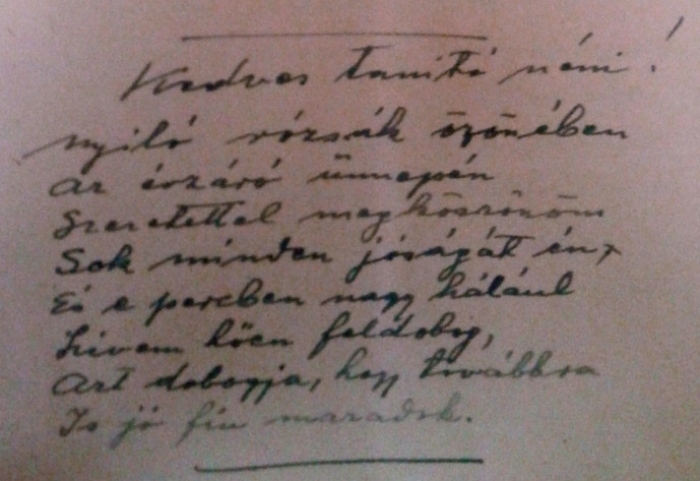 Kedves tanító néni!
nyiló rózsák özönében
az évzáró ünnepén
Szeretettel megköszönöm
Sok minden jóságát én,
És e percben nagy hálául
Szivem hően feldobog,
Azt dobogja, hogy továbbra
Is jó fiu maradok.